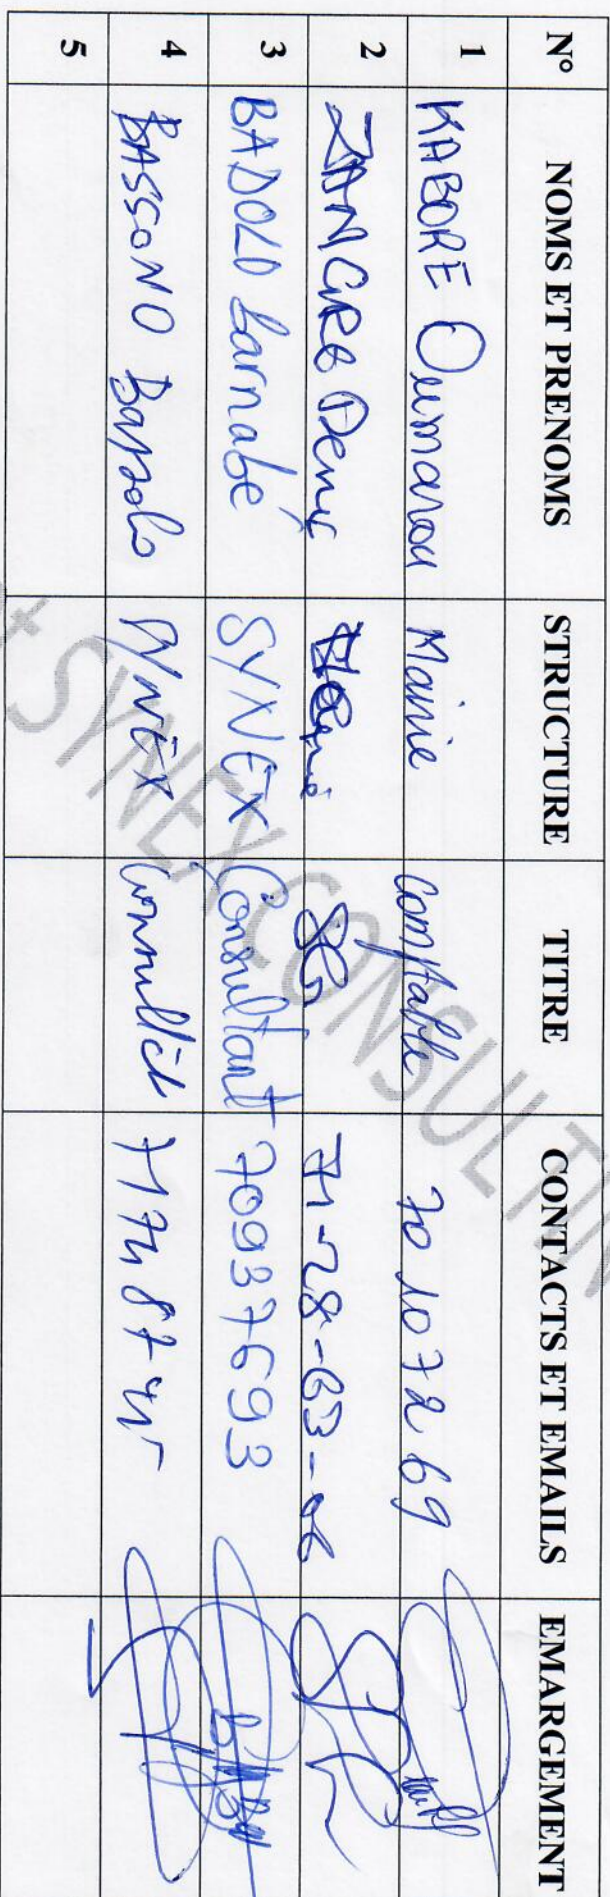 N° NOMS ET PRENOMS STRUCTURE TITRE CONTACTS ET EMAILS EMARGEMENT
1 KABORE Oumarou Mairie Comptable 70 10 72 69
2 ZANGRE Denis SG 71-28-63-06
3 BADOLO Barnabé SYNEX Consultant 70937693
4 BASSONO Bassolo SYNEX
5
SYNEX CONSULTIN